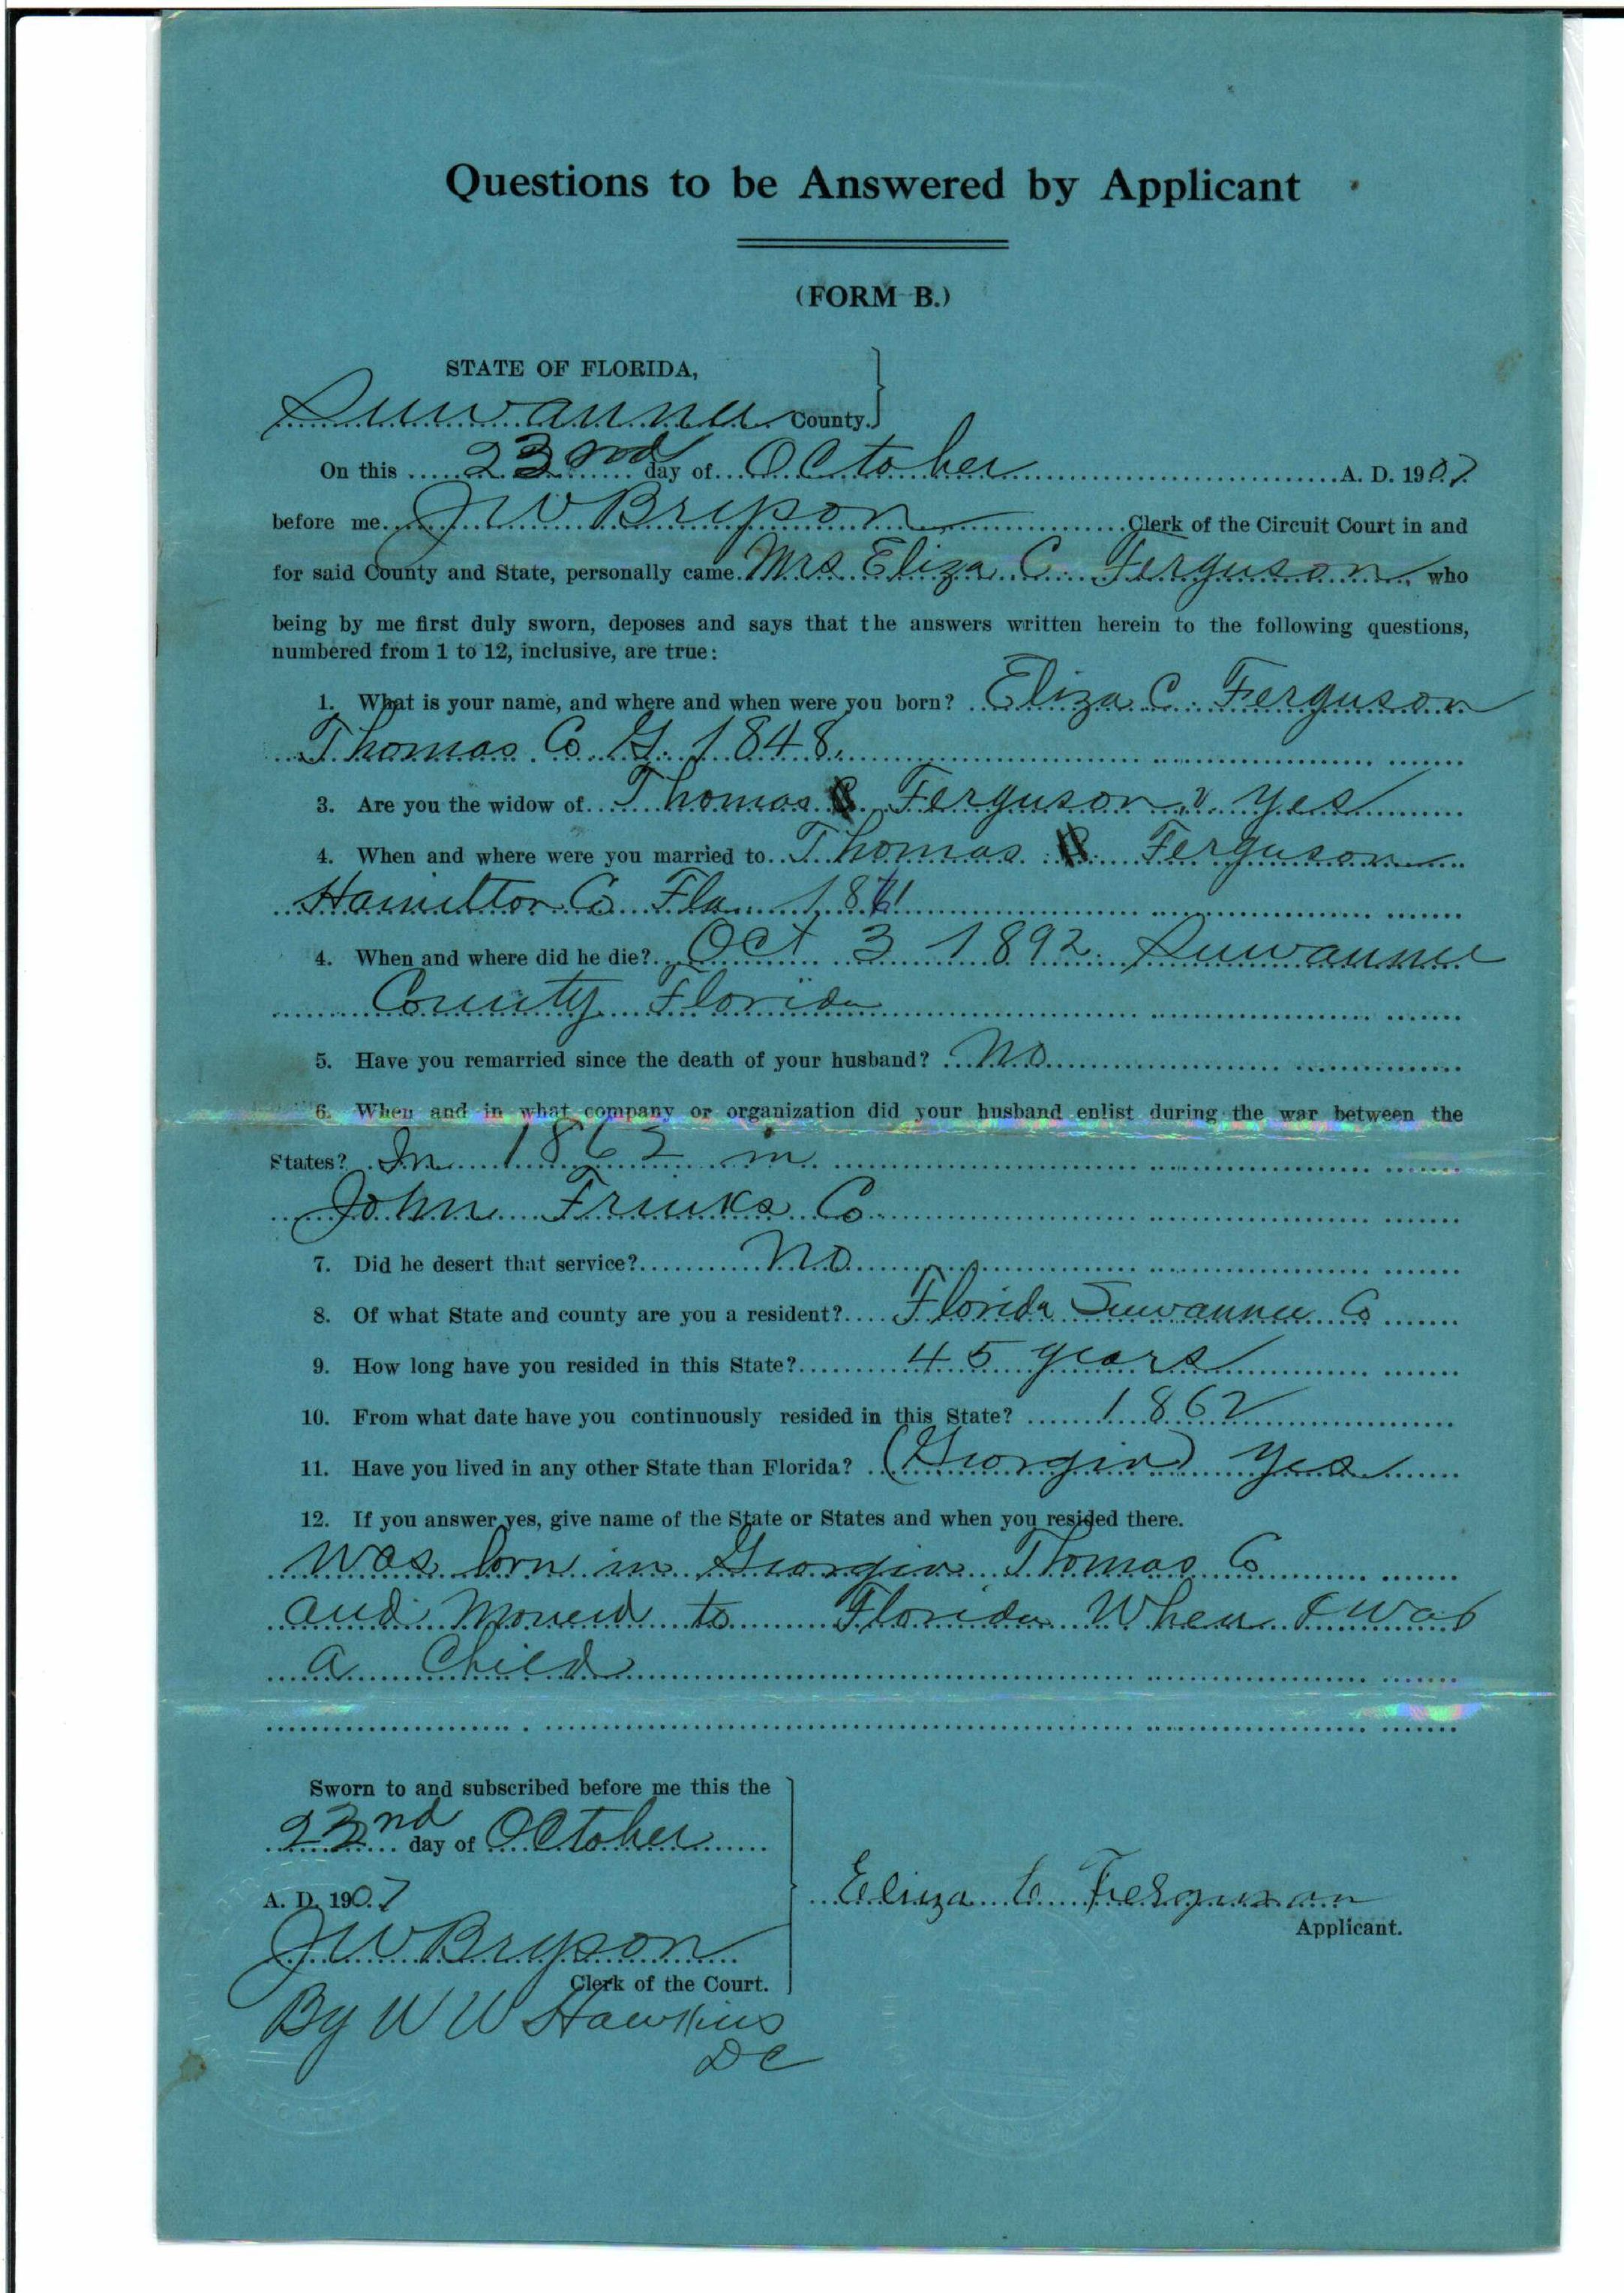 Questions to be Answered by Applicant
(FORM B.)
STATE OF FLORIDA,
Suwannee County.
On this 23nd day of October A. D. 1907
before me J W Bryson Clerk of the Circuit Court in and
for said County and State, personally came Mrs Eliza C. Ferguson, who
being by me first duly sworn, deposes and says that the answers written herein to the following questions,
numbered from 1 to 12, inclusive, are true:
1. What is your name, and where and when were you born? Eliza C. Ferguson
Thomas Co. G. 1848.
3. Are you the widow of Thomas Ferguson? yes
4. When and where were you married to Thomas Ferguson
Hamilton Co Fla
4. When and where did he die? Oct 3 1892. Suwannee
County Florida
5. Have you remarried since the death of your husband? No
6. When and in what company or organization did your husband enlist during the war between the
States? In 1862 in
John Frinks Co
7. Did he desert that service? No
8. Of what State and county are you a resident? Florida Suwannee Co
9. How long have you resided in this State? 45 years
10. From what date have you continuously resided in this State? 1862
11. Have you lived in any other State than Florida? (Georgia) yes
12. If you answer yes, give name of the State or States and when you resided there.
Was born in Georgia Thomas Co
and Moved to Florida When I was
a Child
Sworn to and subscribed before me this the
23nd day of October
A. D. 1907
Eliza C Ferguson
Applicant.
J W Bryson
Clerk of the Court.
By W W Hawkins
DC